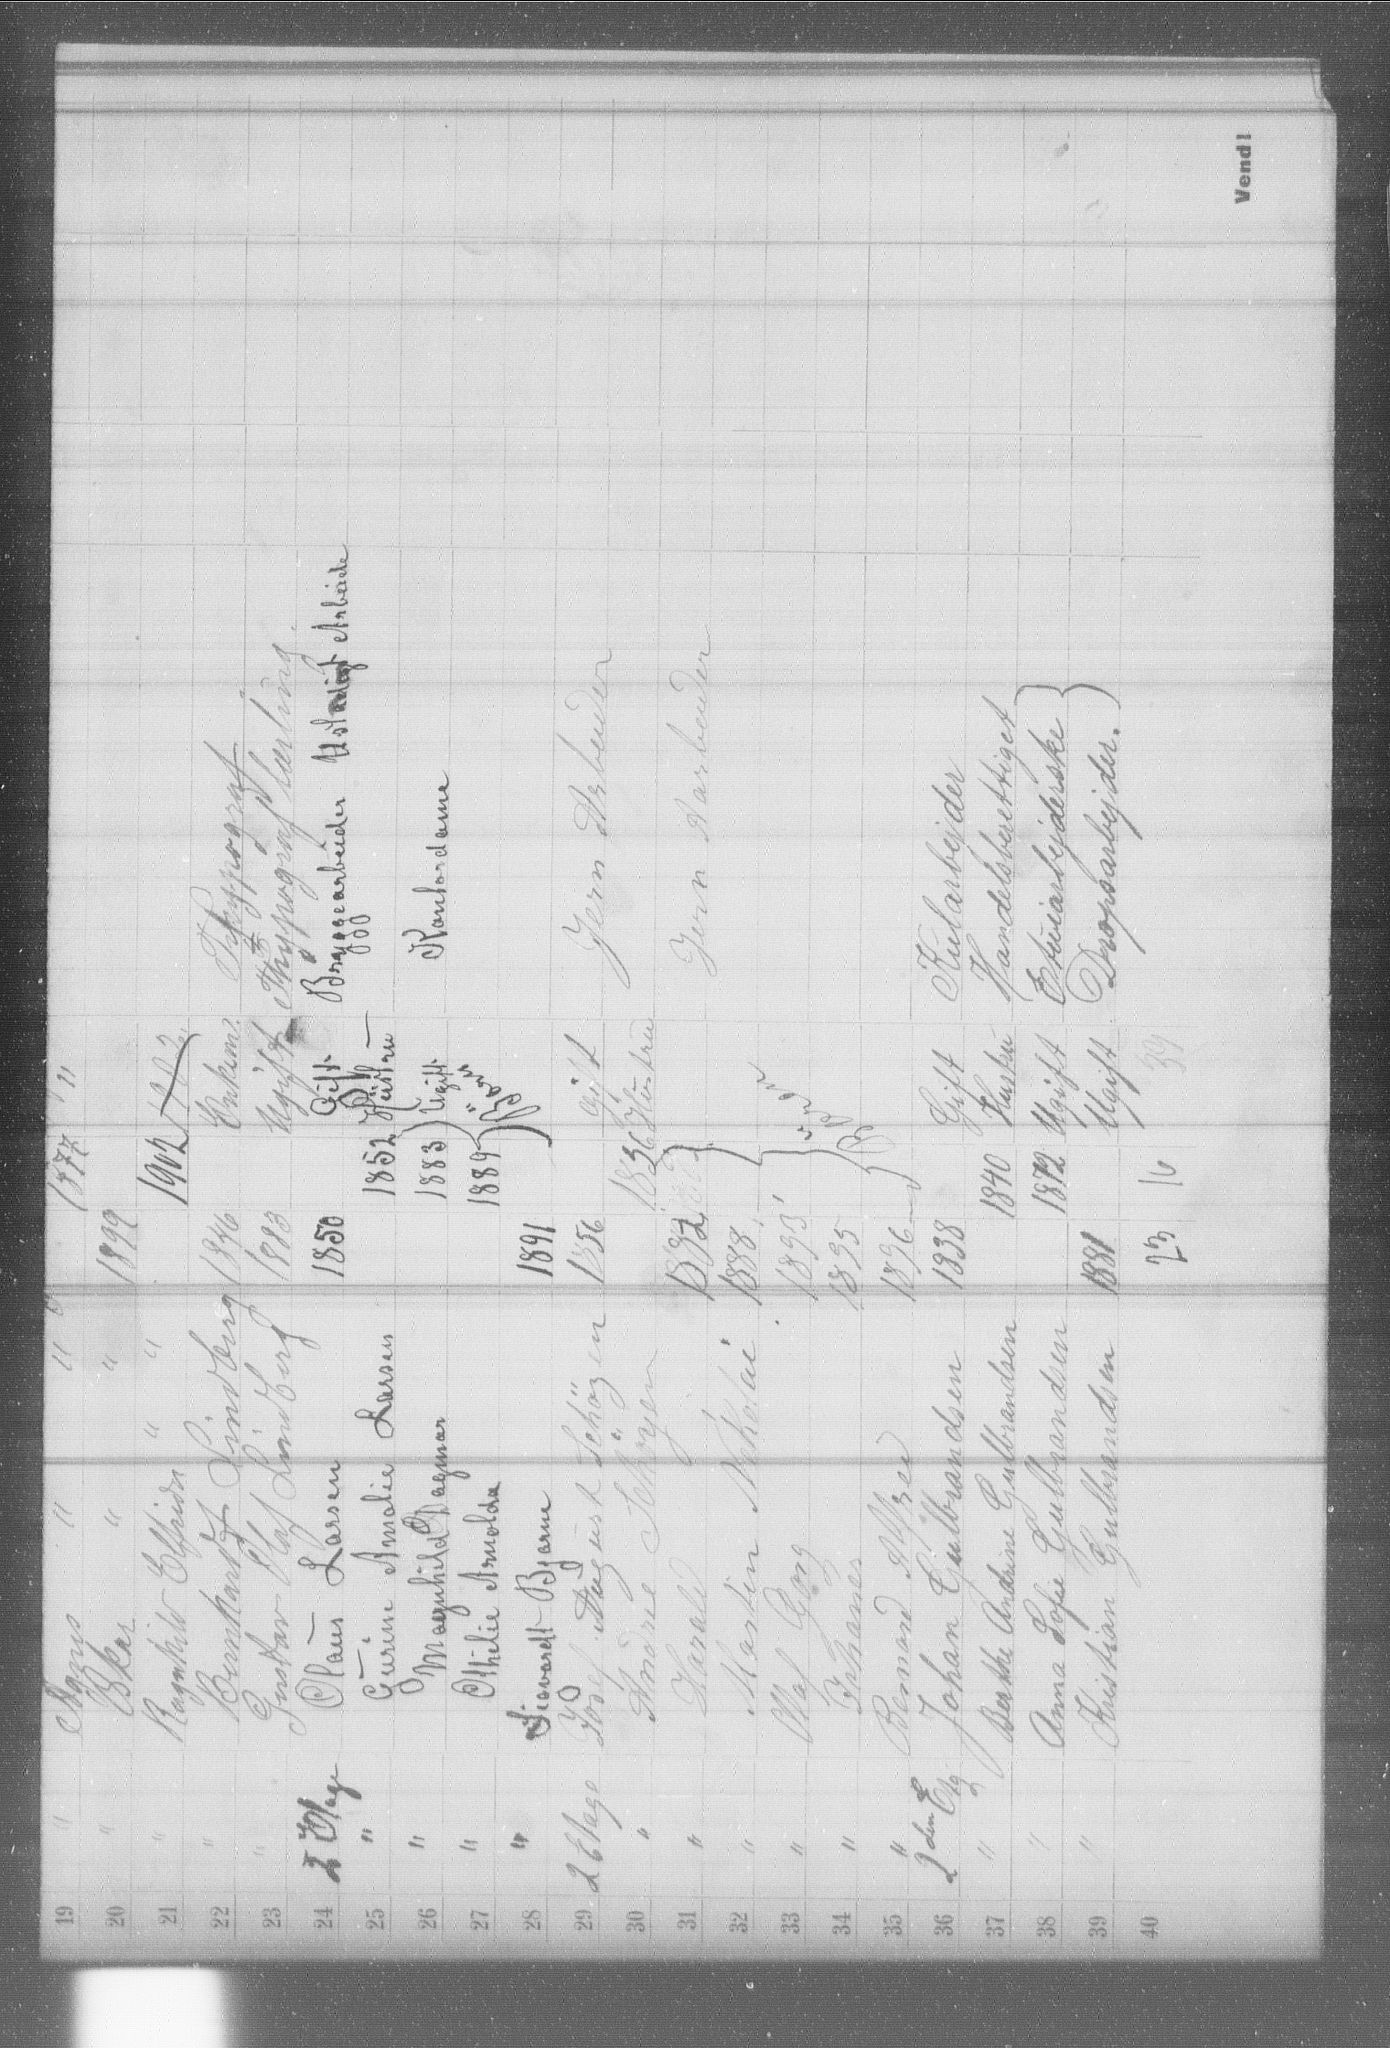 19 " Hans " " " 1877 "
20 " Oskar " " 1899
21 " Ragnhild Elfrida " " 1902
22 " Bernhardt Lindberg 1846 Enkem. Typograf
23 " Gustav Olaf Lindberg 1883 Ugift Thypograf lærling.
24 2 Etage Olaus Larsen 1850 Gift Bryggearbeider Ustadigt Arbeide
25 " Gurine Amalie Larsen 1852 Hustru
26 " Magnhild Dagmar 1883 Ugift Kontordame
27 " Othilie Arnolda 1889 "
28 " Sigvardt Bjarne 1891 Barn
29 2 Etage Josef August Schözen 1856 gift Jern Arbeider
30 " Andree Schøyen 1856 Hustru
31 " Harald 1882 Jern Aarbeider
32 " Martin Nikolai 1888
33 " Olaf Georg 1893 Barn
34 " Johannes 1895
35 " Bernard Alfred 1896
36 2den Etg Johan Gulbrandsen 1838 Gift Kularbejder
37 " Berthe Andrine Gulbrandsen 1840 Hustru Handelsberettiget
38 " Anna Sofie Gulbrandsen 1872 Ugift Etuiarbejderske
39 " Kristian Gulbrandsen 1881 Ugift Dropsarbejder.
40 23 16 39
Vend!